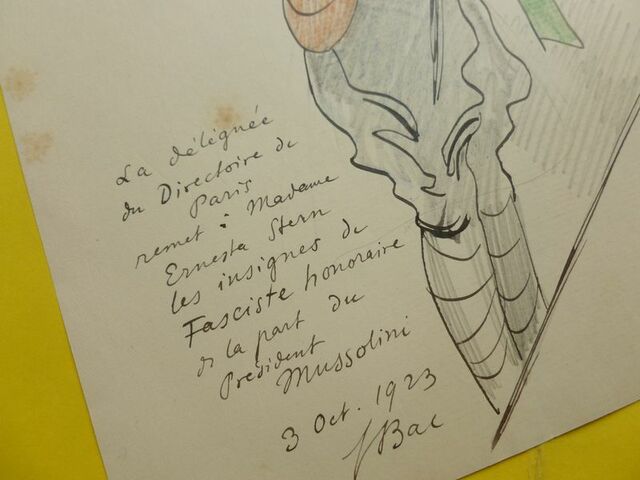 La déléguée
du Directoire de
Paris
remet à Madame
Ernesta Stern
les insignes de
Fasciste honoraire
de la part du
Président
Mussolini
3 Oct. 1923
Bac